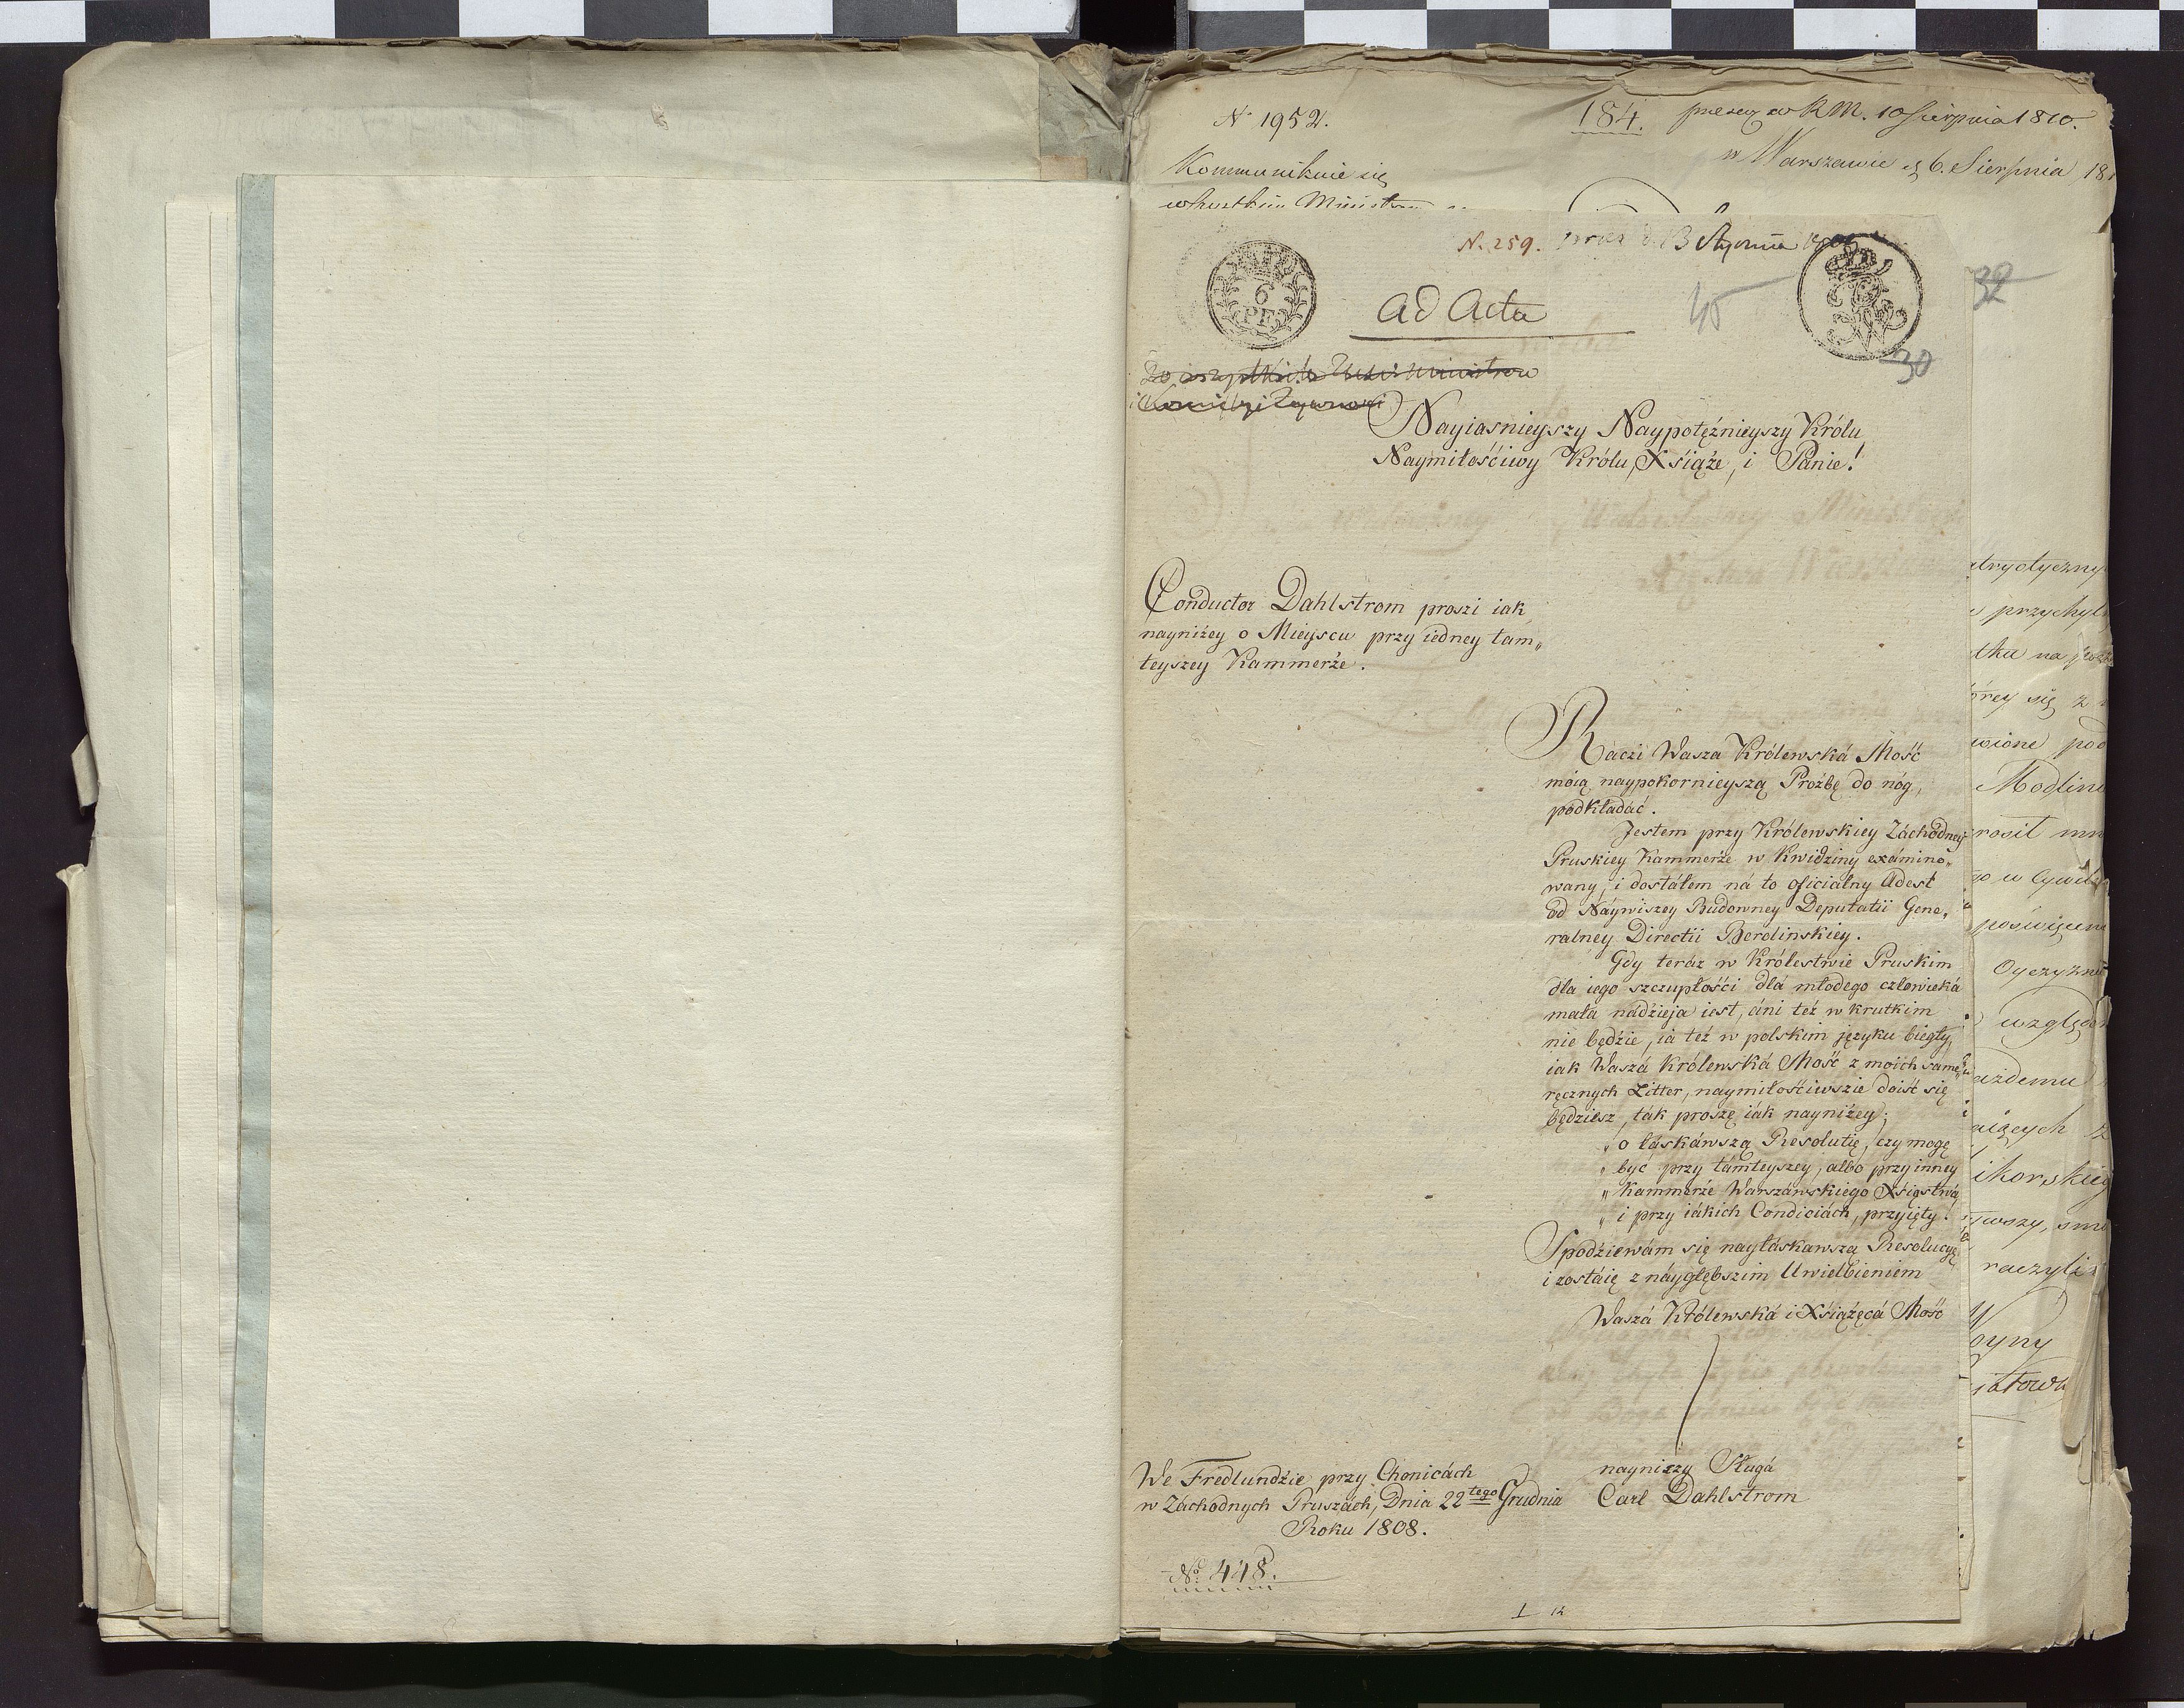 N 1952.
184. w RM. 10 Sierpnia 1810.
w Warszawie d 6. Sierpnia 18
Kommunikuie się
N. 259. 13 Stycznia
6
PF
Ad Acta
45
32
30
Nayiasnieyszy Naypotęźnieyszy Królu
Naymiłośćiwy Królu, Xsiąźe, i Panie!
Conductor Dahlstrom proszi iak
nayniźey o Mieyscu przy iedney tam„
teyszey Kammerźe.
Raczi Wasza Królewská Mość
móią naypokornieyszą Proźbę do nóg,
podkładáć.
Jestem przy Królewskiey Záchodney
Pruskiey Kammerźe w Kwidziny exámino„
wany, i dostáłem ná to oficialny Adest
od Náywiszey Budowney Deputatii Gene„
ralney Directii Berolinskiey.
Gdy teráz w Królestwie Pruskim
dla iego szczupłośći dlá młodego człowieká
mała nádzieja iest, áni teź w krutkim
nie będzie, iá teź w polskim języku biegły,
iak Waszá Królewská Mość z moich samo„
ręcznych Litter, naymiłośćiwszie doisć się
będziesz, ták proszę iák nayniźey;
„ o łáskáwszą Resolutię, czy mogę
„ być przy támteyszey, albo przy inney
„ Kammerźe Warszáwskiego Xsięstwá
„ i przy iákich Condiciách, przyięty.
Spodźiewám się nayłáskawszą Resolucyę
i zostáię z náygłębszim Uwielbieniem
Waszá Królewská i Xsiąźęcá Mość
nayniszy Sługá
Carl Dahlstrom
We Fredlundźie przy Chonicách
w Záchodnych Pruszách, Dnia 22tego Grudnia
Roku 1808.
No 448.
trydyczny
przychyl
tku na
rey się z
wione pod
Modlin
rosił
poświęcen
Oyczyzn
względ
aiżdemu
aiących
ikorskieg
raczyli
oyny
iatow